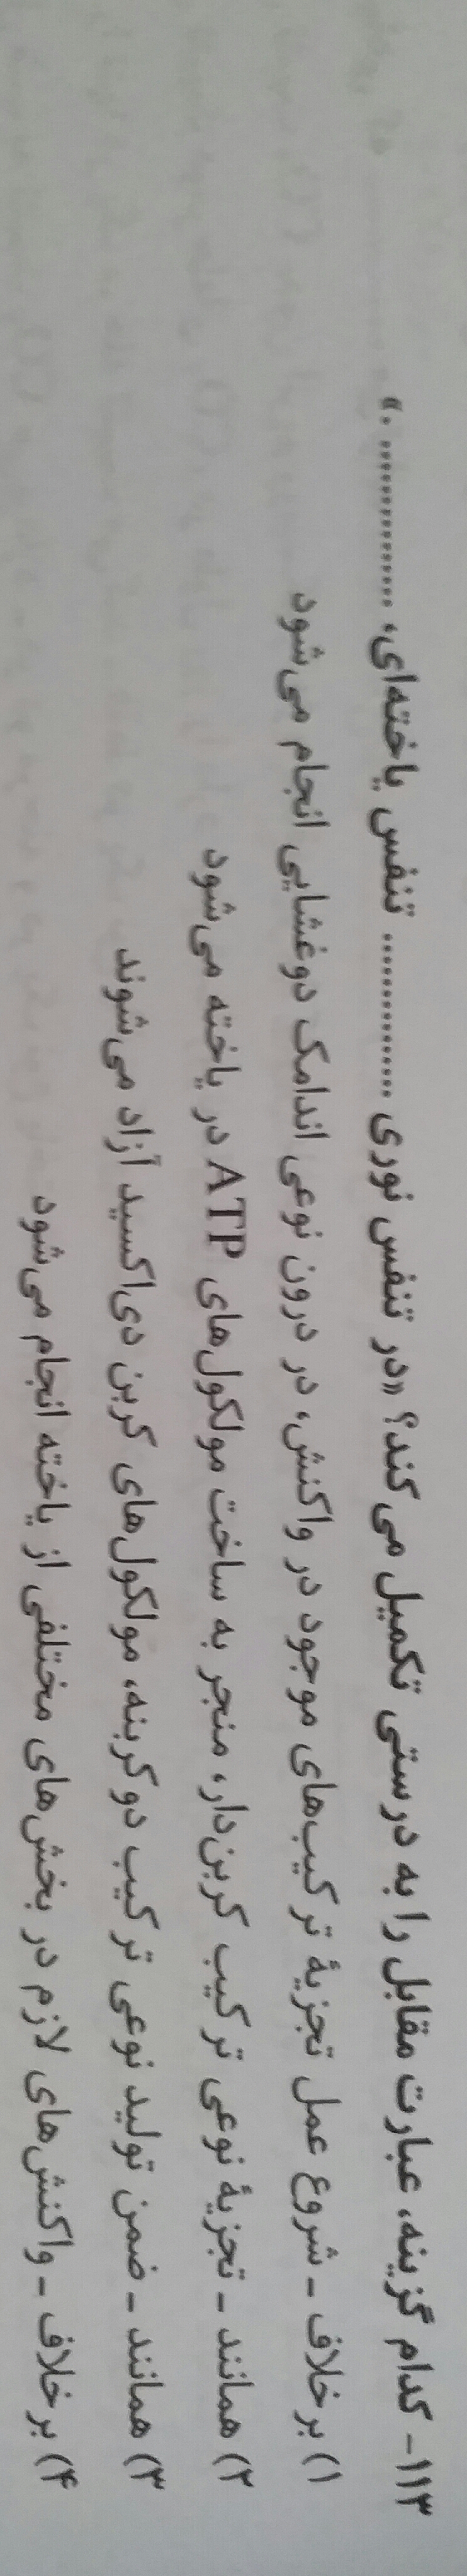 ۱۱۳- کدام گزینه، عبارت مقابل را به درستی تکمیل می‌کند؟ «در تنفس نوری ............... تنفس یاخته‌ای، ............... .»
۱) برخلاف - شروع عمل تجزیهٔ ترکیب‌های موجود در واکنش، در درون نوعی اندامک دوغشایی انجام می‌شود
۲) همانند - تجزیهٔ نوعی ترکیب کربن‌دار، منجر به ساخت مولکول‌های ATP در یاخته می‌شود
۳) همانند - ضمن تولید نوعی ترکیب دوکربنه، مولکول‌های کربن دی‌اکسید آزاد می‌شوند
۴) برخلاف - واکنش‌های لازم در بخش‌های مختلفی از یاخته انجام می‌شود